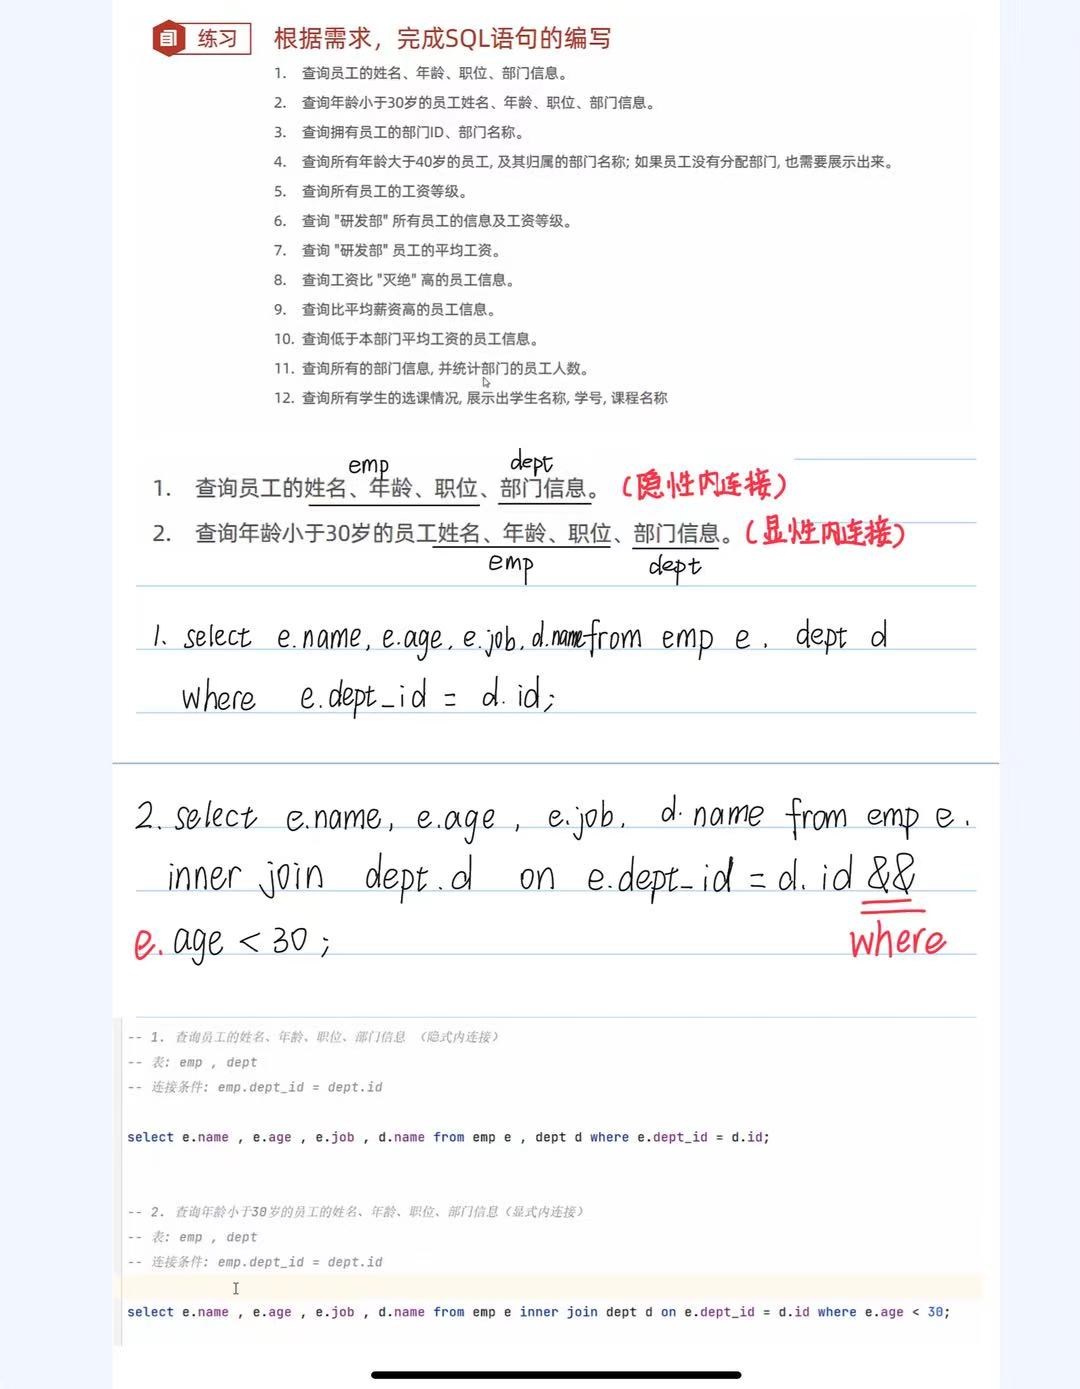 练习 根据需求，完成SQL语句的编写
1. 查询员工的姓名、年龄、职位、部门信息。
2. 查询年龄小于30岁的员工姓名、年龄、职位、部门信息。
3. 查询拥有员工的部门ID、部门名称。
4. 查询所有年龄大于40岁的员工, 及其归属的部门名称; 如果员工没有分配部门, 也需要展示出来。
5. 查询所有员工的工资等级。
6. 查询 "研发部" 所有员工的信息及工资等级。
7. 查询 "研发部" 员工的平均工资。
8. 查询工资比 "灭绝" 高的员工信息。
9. 查询比平均薪资高的员工信息。
10. 查询低于本部门平均工资的员工信息。
11. 查询所有的部门信息, 并统计部门的员工人数。
12. 查询所有学生的选课情况, 展示出学生名称, 学号, 课程名称
emp dept
1. 查询员工的姓名、年龄、职位、部门信息。（隐性内连接）
2. 查询年龄小于30岁的员工姓名、年龄、职位、部门信息。（显性内连接）
emp dept
1. select e.name, e.age, e.job, d.name from emp e, dept d
where e.dept_id = d.id;
2. select e.name, e.age, e.job, d.name from emp e.
inner join dept.d on e.dept_id = d.id &&
e. age < 30; where
-- 1. 查询员工的姓名、年龄、职位、部门信息 （隐式内连接）
-- 表: emp , dept
-- 连接条件: emp.dept_id = dept.id
select e.name , e.age , e.job , d.name from emp e , dept d where e.dept_id = d.id;
-- 2. 查询年龄小于30岁的员工的姓名、年龄、职位、部门信息（显式内连接）
-- 表: emp , dept
-- 连接条件: emp.dept_id = dept.id
select e.name , e.age , e.job , d.name from emp e inner join dept d on e.dept_id = d.id where e.age < 30;